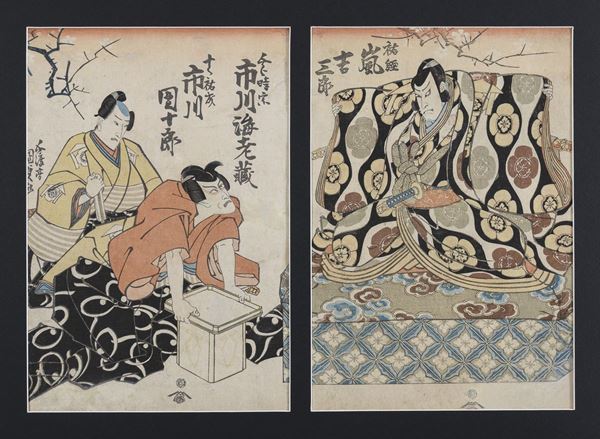 祐経
嵐
吉
三郎
時宗
市川海老藏
祐成
市川
団十郎
五渡亭
国貞画